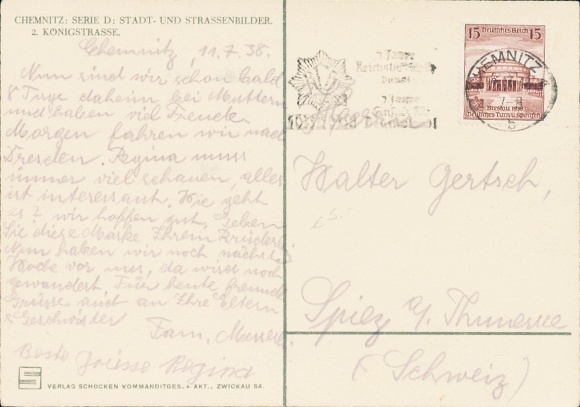 CHEMNITZ: SERIE D: STADT- UND STRASSENBILDER.
2. KÖNIGSTRASSE.
Chemnitz, 11.7.38.
Nun sind wir schon bald
8 Tage daheim bei Muttern
und haben viel Freude.
Morgen fahren wir nach
Dresden. Regina muss
immer viel schauen, alles
ist interessant. Wie geht
es? wir hoffen gut. Geben
Sie diese Marke Ihrem Bruder
Nun haben wir noch nächste
Woche vor uns, da wird noch
gewandert. Für heute freundl
Grüsse auch an Ihre Eltern
& Geschwister
Fam.
Beste Grüsse Regina
VERLAG SCHOCKEN KOMMANDITGES. A. AKT., ZWICKAU SA.
15 Deutsches Reich 15
Breslau 1938
Deutsches Turn- u. Sportfest
CHEMNITZ
Walter Gertsch,
Spiez a/ Thunersee
(Schweiz)